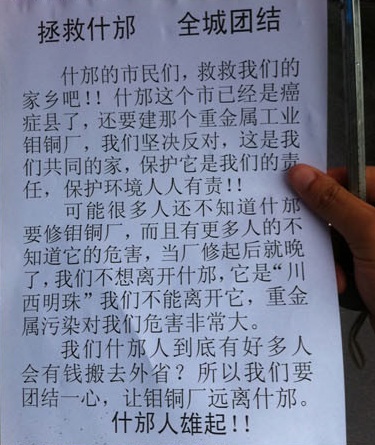 拯救什邡　全城团结
什邡的市民们，救救我们的
家乡吧!! 什邡这个市已经是癌
症县了，还要建那个重金属工业
钼铜厂，我们坚决反对，这是我
们共同的家，保护它是我们的责
任，保护环境人人有责!!
可能很多人还不知道什邡
要修钼铜厂，而且有更多人的不
知道它的危害，当厂修起后就晚
了，我们不想离开什邡，它是“川
西明珠”我们不能离开它，重金
属污染对我们危害非常大。
我们什邡人到底有好多人
会有钱搬去外省？所以我们要
团结一心，让钼铜厂远离什邡。
什邡人雄起!!